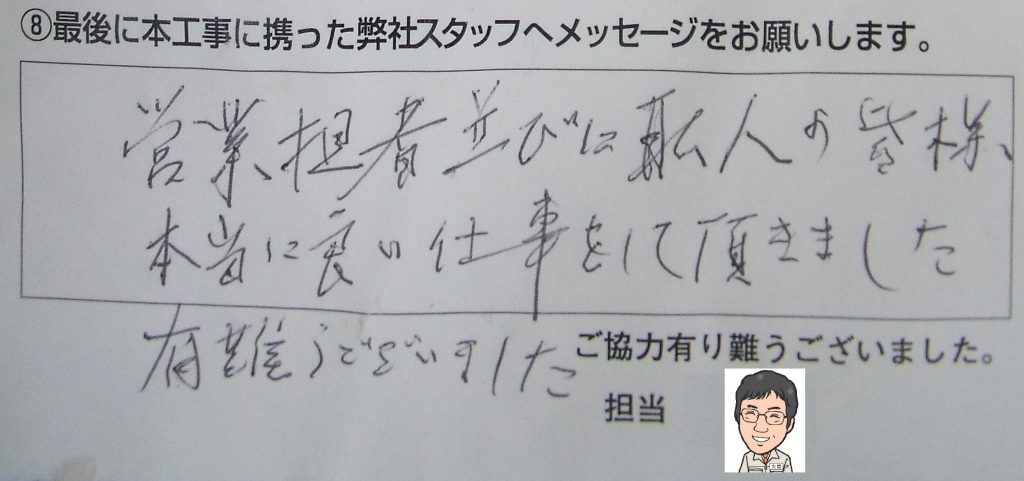 ⑧最後に本工事に携った弊社スタッフへメッセージをお願いします。
営業担者並びに職人の皆様、
本当に良い仕事をして頂きました
有難うございました
ご協力有り難うございました。
担当